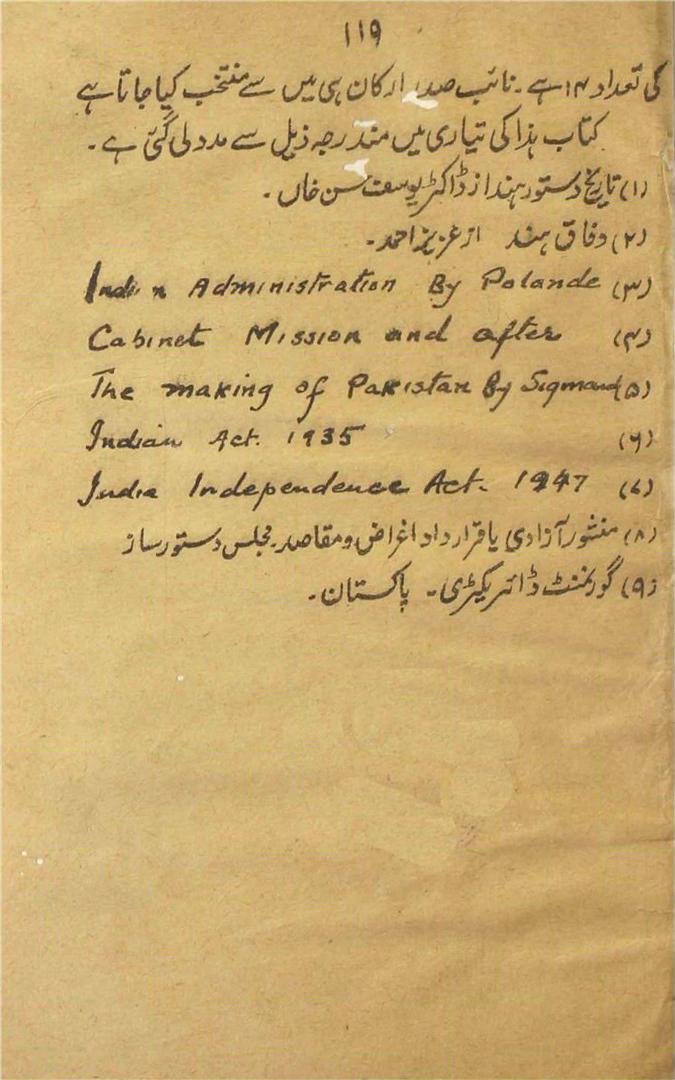 ۱۱۹
کی تعداد ۱۴ ہے۔ نائب صدر ارکان ہی میں سے منتخب کیا جاتا ہے
کتاب ہذا کی تیاری میں مندرجہ ذیل سے مدد لی گئی ہے۔
(۱) تاریخ دستور ہند از ڈاکٹر یوسف حسن خاں۔
(۲) وفاق ہند از عزیز احمد۔
(۳) Indian Administration By Palande
(۴) Cabinet Mission and after
(۵) The making of Pakistan By Sigmand
(۶) Indian Act. 1935
(۷) India Independence Act. 1947
(۸) منشور آزادی یا قرارداد اغراض و مقاصد۔ مجلس دستور ساز
(۹) گورنمنٹ ڈائریکٹری۔ پاکستان۔